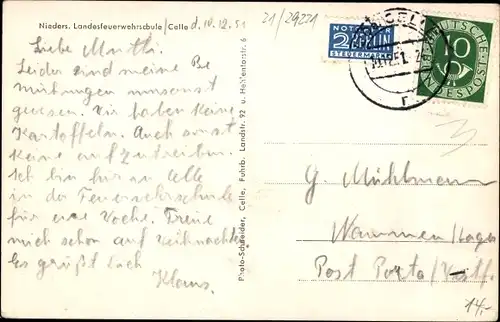 Nieders. Landesfeuerwehrschule / Celle d. 10.12.51
Liebe Mutti.
Leider sind meine Be
mühungen umsonst
gewesen. Wir haben keine
Kartoffeln. Auch sonst
keine aufzutreiben.
Ich bin für in Celle
in der Feuerwehrschule
für eine Woche. Freue
mich schon auf Weihnachten
Es grüßt Euch
Klaus.
Photo-Schneider, Celle, Fuhrb. Landstr. 92 u. Hehlentorstr. 6
21/29221
NOTOPFER
2 BERLIN
STEUERMARKE
CELLE
DEUTSCHE
BUNDESPOST
10
G. Mühlmann
Nammen
Post Porta/Westf.
14.-